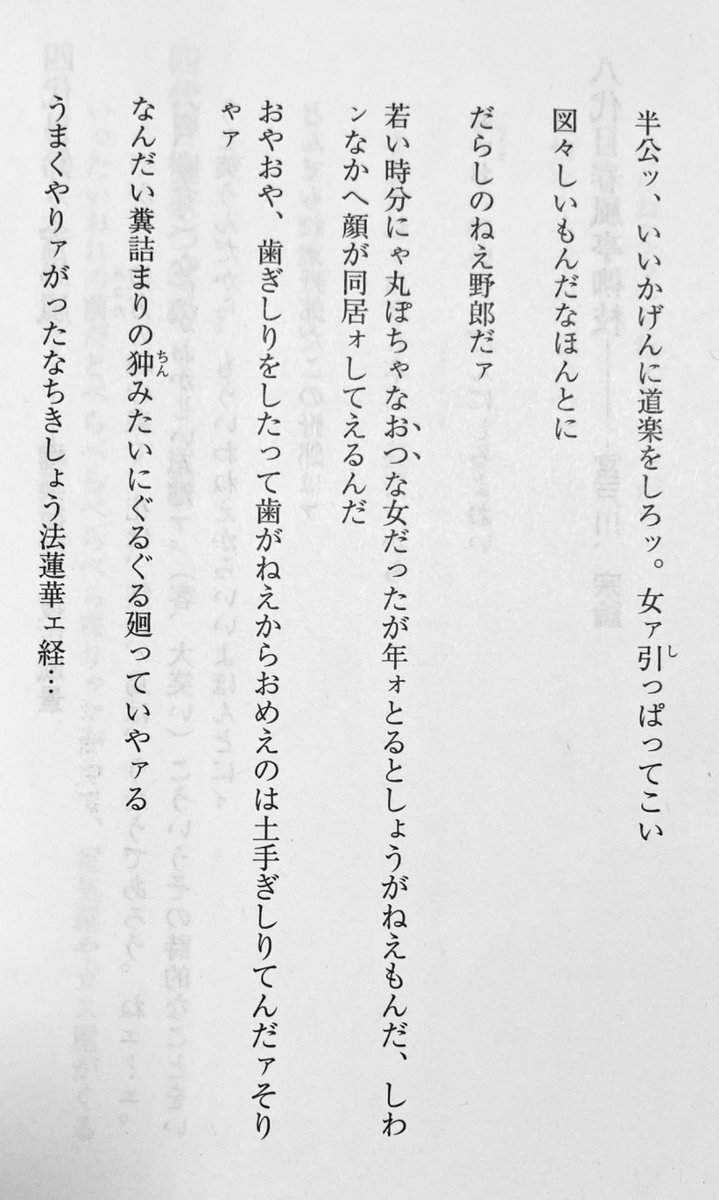 半公ッ、いいかげんに道楽をしろッ。女ァ引っぱってこい
図々しいもんだなほんとに
だらしのねえ野郎だァ
若い時分にゃ丸ぽちゃなおつな女だったが年ォとるとしょうがねえもんだ、しわ
ンなかへ顔が同居ォしてえるんだ
おやおや、歯ぎしりをしたって歯がねえからおめえのは土手ぎしりてんだァそり
ゃァ
なんだい糞詰まりの狆みたいにぐるぐる廻っていやァる
うまくやりァがったなちきしょう法蓮華ェ経…